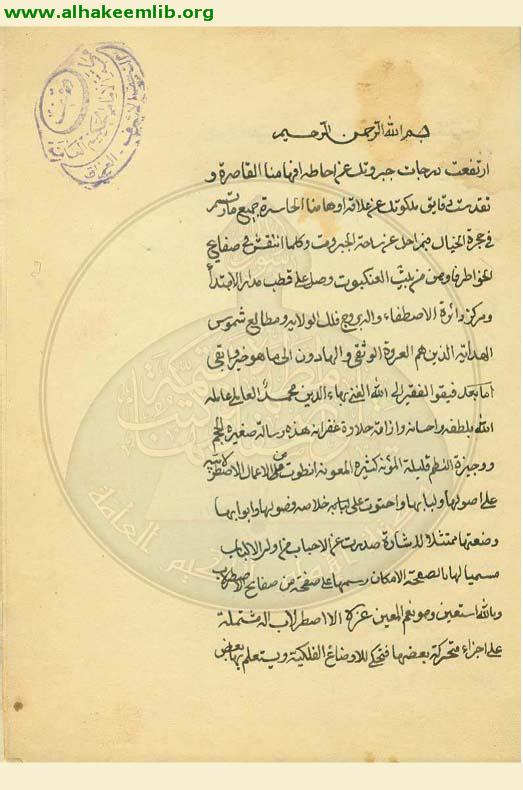 www.alhakeemlib.org
بسم الله الرحمن الرحيم
ارتفعت درجات جبروتك عن احاطه افهامنا القاصرة و
تقدست دقايق ملكوتك عن علاقة اوهامنا الحاسرة جميع ما
في حجرة الخيال بمراحل عن ساحة الجبروت وكلما انتقش في صفايح
الخواطر اوهن من بيت العنكبوت وصل على قطب مدار الابتدا
ومركز دائرة الاصطفاء والبروج فلك الولايه ومطالع شموس
الهداية الذين هم العروة الوثقى والهادون الى ما هو خير وابقى
اما بعد فيقول الفقير الى الله الغني بهاء الدين محمد العاملي عامله
الله بلطفه واحسانه واذاقه حلاوة غفرانه هذه رسالة صغيرة الحجم
ووجيزة النظم قليلة المؤنه كثيرة المعونه انطوت من الاعمال الاصطرلابيه
على اصولها ولبابها واحتوت على خلاصه فصولها وابوابها
وضعتها ممتثلا لاشارة صدرت عن الاحباب من اولى الالباب
مسميا لها بالصفحة لامكان رسمها على صفحة من صفايح الاصطرلاب
وبالله استعين وهو نعم المعين غرة الاصطرلاب اله مشتملة
على اجزاء متحركة بعضها فتحكى الاوضاع الفلكية ويستعلم بها بعض